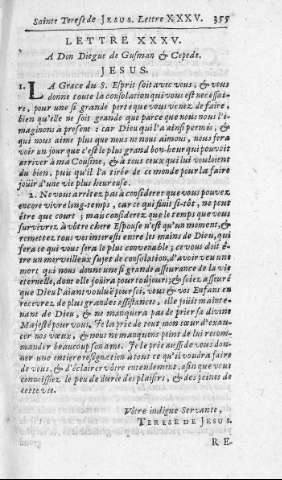 Sainte Terese de JESUS. Lettre XXXV. 355
LETTRE XXXV.
A Don Diegue de Gusman & Cepede.
JESUS.
1. LA Grace du S. Esprit soit avec vous, & vous
donne toute la consolation qui vous est necessai-
re, pour une si grande perte que vous venez de faire,
bien qu'elle ne soit grande que parce que nous nous l'i-
maginons à present : car Dieu qui l'a ainsi permis, &
qui nous aime plus que nous ne nous aimons, nous fera
voir un jour que c'est le plus grand bon-heur qui pouvoit
arriver à ma Cousine, & à tous ceux qui lui vouloient
du bien, puis qu'il l'a tirée de ce monde pour la faire
joüir d'une vie plus heureuse.
2. Ne vous arrêtez pas à considerer que vous pouvez
encore vivre long-temps, car ce qui finit si-tôt, ne peut
être que court ; mais considerez que le temps que vous
survivrez à vôtre chere Espouse n'est qu'un moment, &
remettez tous vos interests entre les mains de Dieu, qui
fera ce qui vous sera le plus convenable ; ce vous doit ê-
tre un merveilleux sujet de consolation, d'avoir veu une
mort qui nous donne une si grande asseurance de la vie
eternelle, dont elle joüira pour toûjours ; & soiez asseuré
que Dieu l'aiant voulue pour soi, vous & vos Enfans en
recevrez de plus grandes assistances, elle joüit mainte-
nant de Dieu, & ne manquera pas de prier sa divine
Majesté pour vous. Je la prie de tout mon cœur d'exau-
cer nos vœux, & nous ne manquons point de lui recom-
mander beaucoup son ame. Je le prie aussi de vous don-
ner une entiere resignation à tout ce qu'il voudra faire
de vous, & d'éclairer vôtre entendement, afin que vous
connoissiez le peu de durée des plaisirs, & des peines de
cette vie.
Vôtre indigne Servante,
TERESE DE JESUS.
RE.